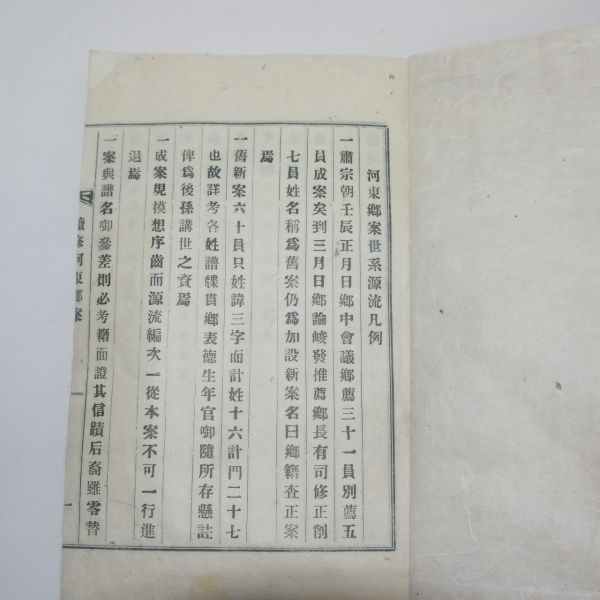 河東鄉案世系源流凡例
一肅宗朝壬辰正月日鄉中會議鄉薦三十一員別薦五
員成案矣到三月日鄉論峻發推薦鄉長有司修正創
七員姓名稱爲舊案仍爲加設新案名曰鄉籍査正案
焉
一舊新案六十員只姓諱三字而計姓十六計門二十七
也故詳考各姓譜牒貫鄉表德生年官啣隨所存懸註
俾爲後孫講世之資焉
一成案規模想序齒而源流編次一從本案不可一行進
退焉
一案與譜名啣參差則必考籍而證其信蹟后裔雖零替
續修河東鄉案
一